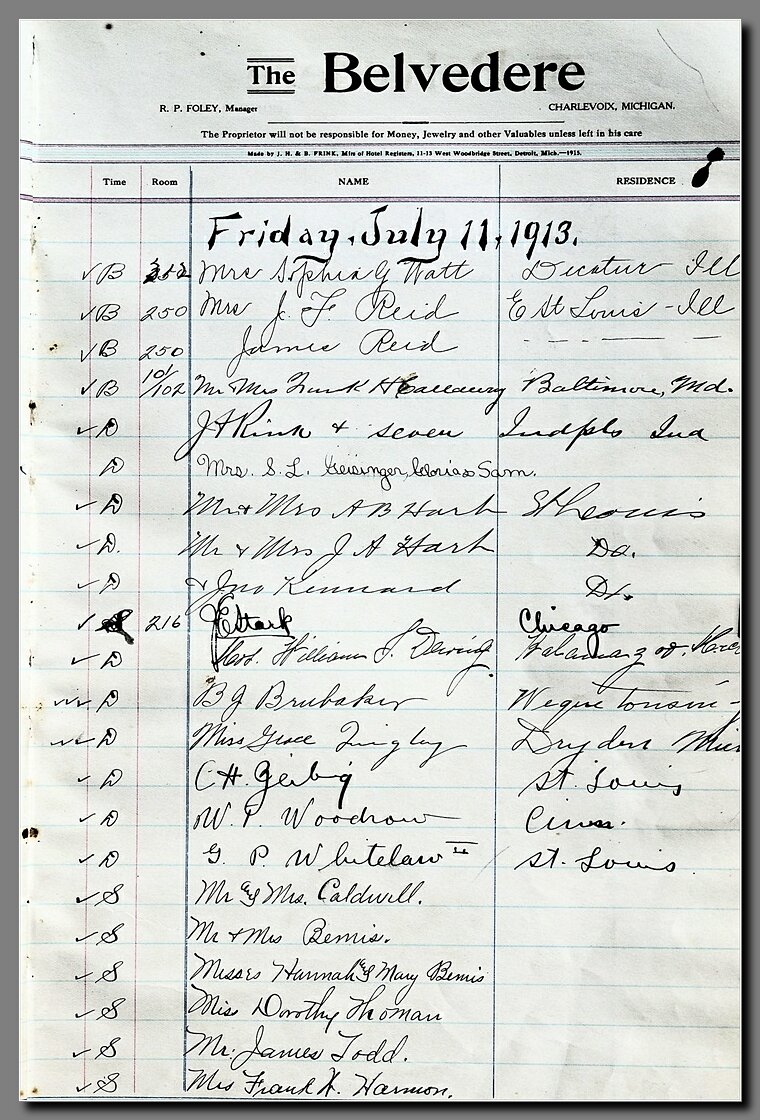 The Belvedere
R. P. FOLEY, Manager CHARLEVOIX, MICHIGAN.
The Proprietor will not be responsible for Money, Jewelry and other Valuables unless left in his care
Made by J. H. & B. FRINK, Mfrs of Hotel Registers, 11-13 West Woodbridge Street, Detroit, Mich.—1915.
Time Room NAME RESIDENCE
Friday, July 11, 1913.
✓ B 252 Mrs Sophia G Watt Decatur Ill
✓ B 250 Mrs J. F. Reid E St Louis - Ill
✓ B 250 James Reid
✓ B 101/102 Mr Mrs Frank H Callaway Baltimore, Md.
✓ D J H Rink + seven Indpls Ind
D Mrs. S. L. Geisinger, & Sam.
✓ D Mr & Mrs A B Hart St Louis
✓ D. Mr & Mrs J A Hart Do.
✓ D & Jno Kennard Do.
✓ 216 J E Stark Chicago
✓ D William S. Dewing
D B J Brubaker Wequetonsing
D Miss Grace Dryden Mich
✓ D C. H. Gerbig St. Louis
✓ D W. P. Woodrow Cinn.
✓ D G. P. Whitelaw II St. Louis
✓ S Mr & Mrs. Caldwell.
✓ S Mr + Mrs Bemis.
✓ S Misses Hannah & Mary Bemis
✓ S Miss Dorothy Thoman
✓ S Mr. James Todd.
✓ S Mrs Frank H. Harmon.